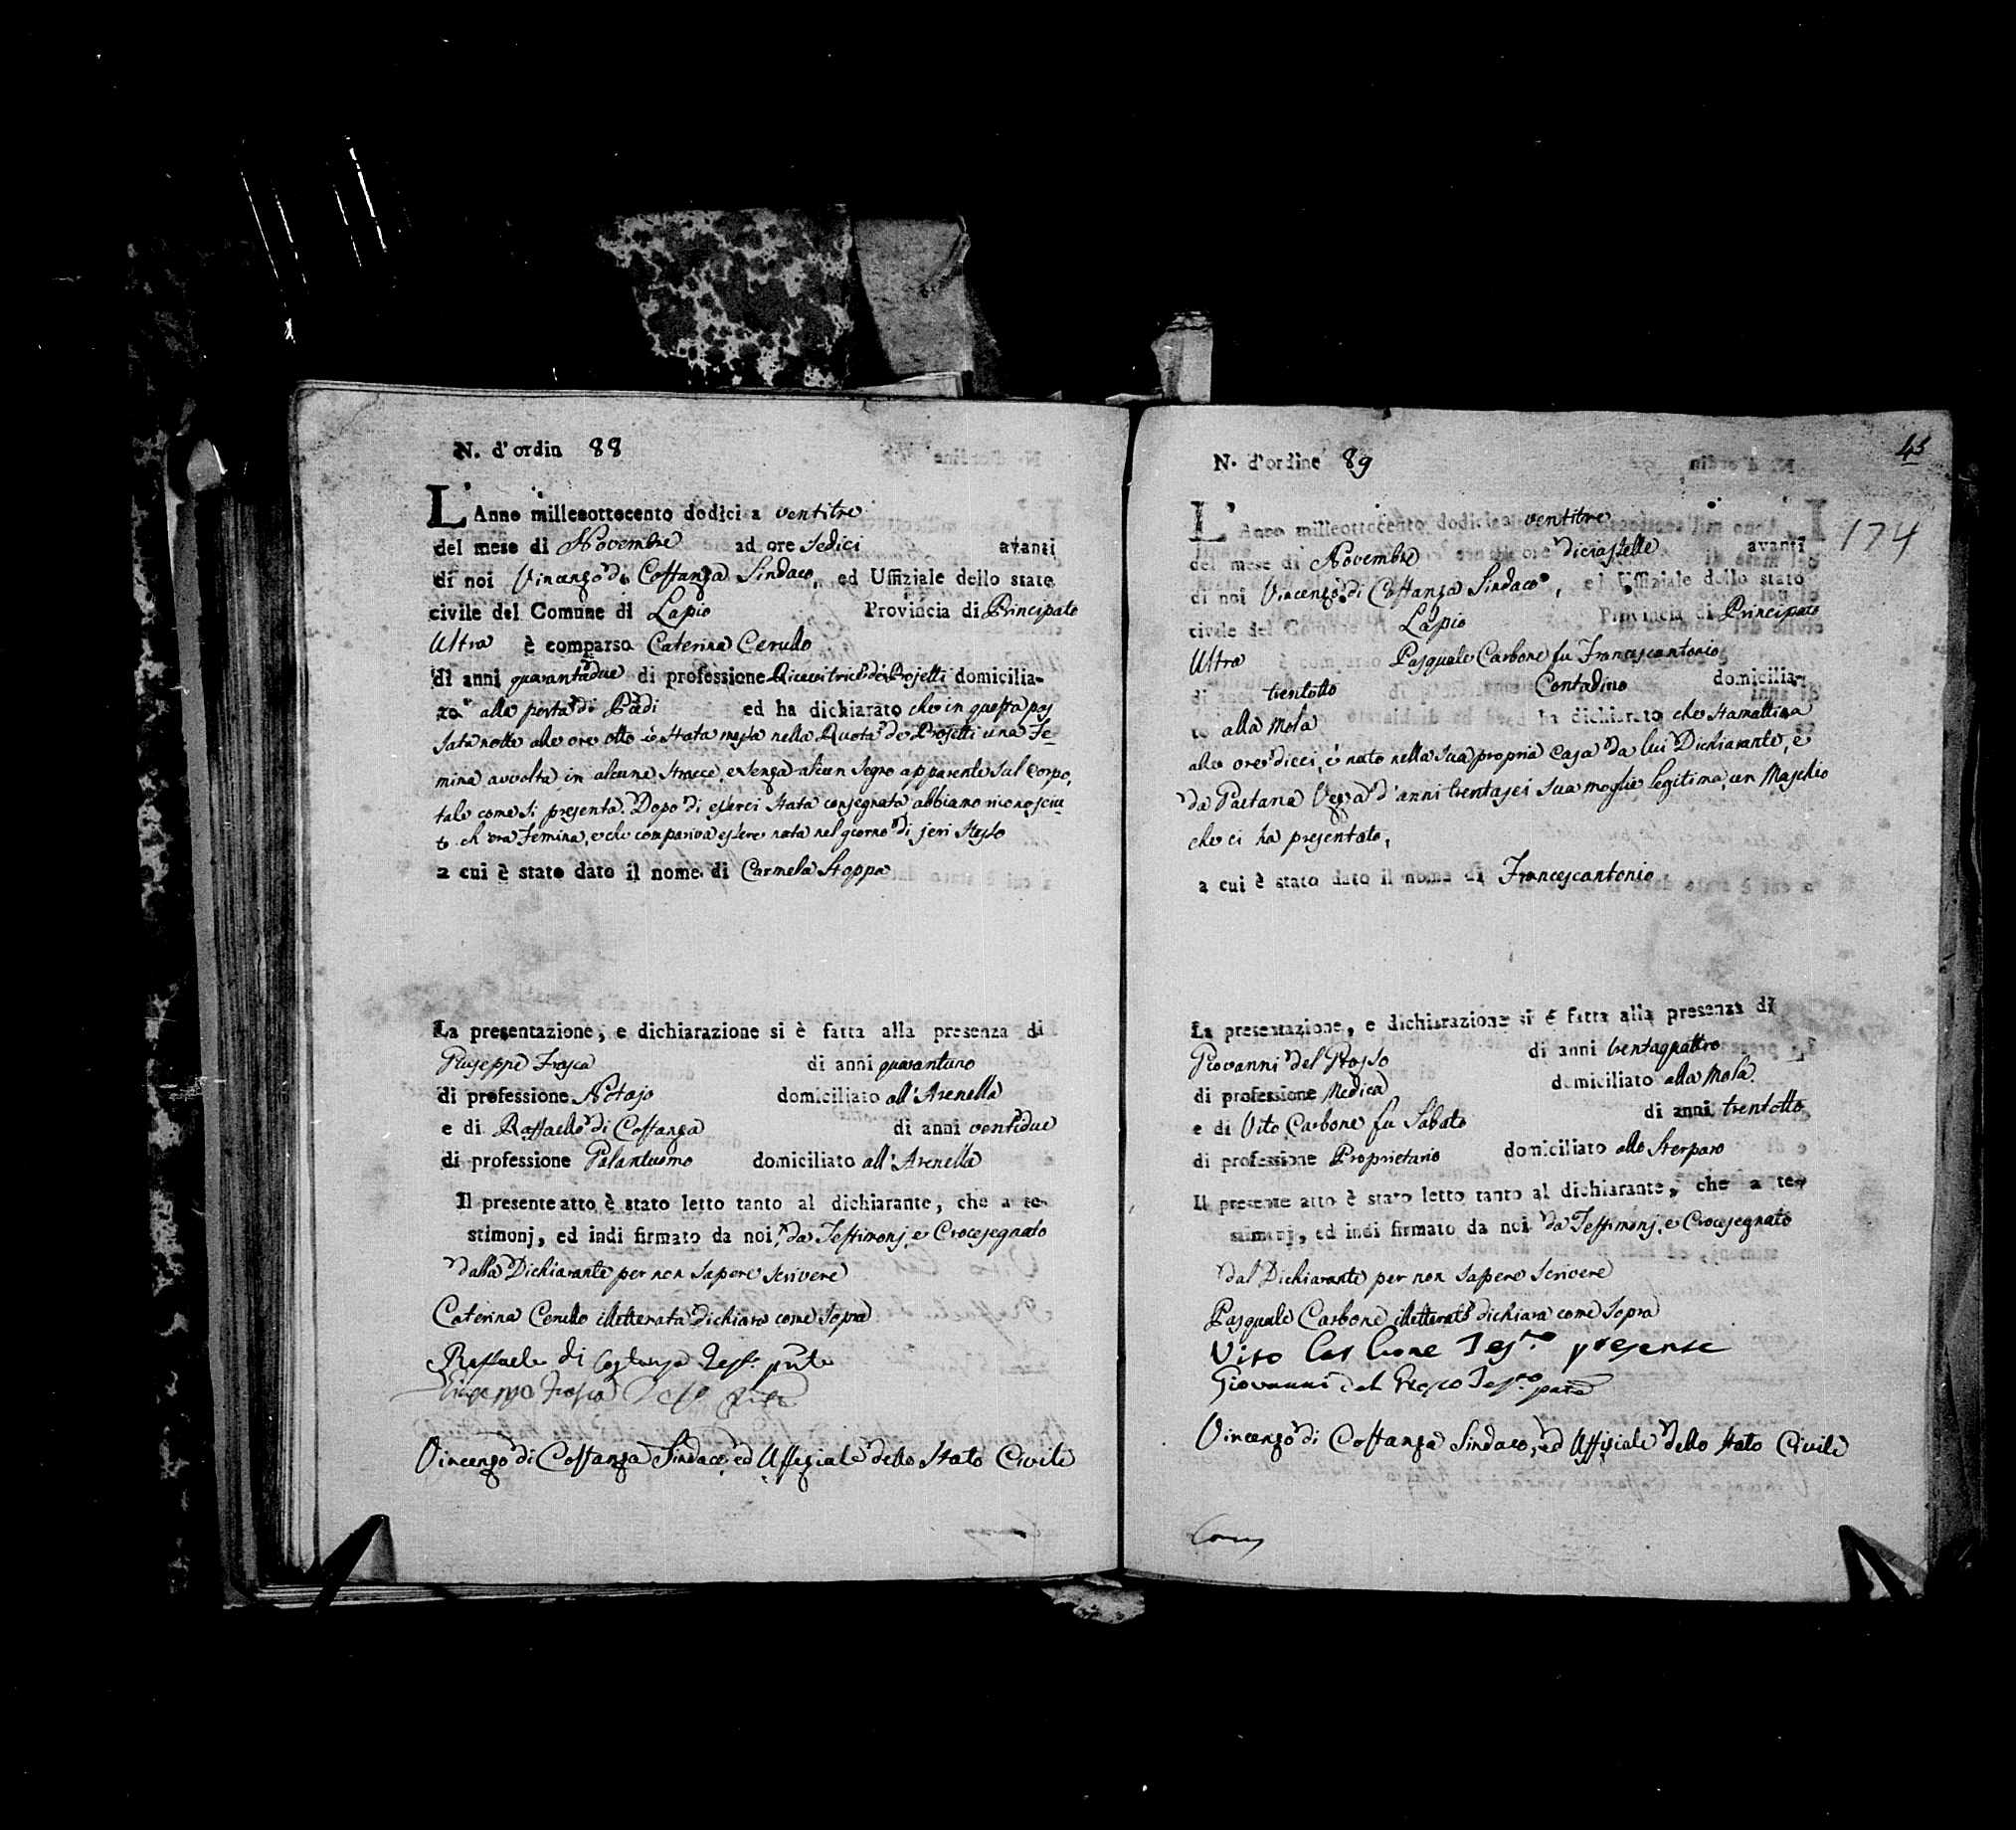 N. d'ordin 88
L'Anno milleottocento dodici a ventitre
del mese di Novembre ad ore sedici avanti
di noi Vincenzo di Costanza Sindaco, ed Uffiziale dello stato
civile del Comune di Lapio Provincia di Principato
Ultra è comparsa Caterina Cerullo
di anni quarantadue di professione Ricevitrice de' Projetti domicilia-
ta alla porta di Piedi ed ha dichiarato che in questa pas
sata notte alle ore otto è stata messa nella Ruota de Projetti una Fe-
mina avvolta in alcune stracce, e senza alcun segno apparente sul corpo,
tale come si presenta. Dopo di esserci stata consegnata abbiamo riconosciu
to ch'era Femina, e che compariva essere nata nel giorno di jeri stesso
a cui è stato dato il nome di Carmela Stoppa
La presentazione, e dichiarazione si è fatta alla presenza di
Giuseppe Frosca di anni quarantuno
di professione Notajo domiciliato all'Arenella
e di Raffaello di Costanza di anni ventidue
di professione Galantuomo domiciliato all'Arenella
Il presente atto è stato letto tanto al dichiarante, che a te-
stimonj, ed indi firmato da noi, da Testimonj, e Crocesegnato
dalla Dichiarante per non sapere scrivere
Caterina Cerullo illetterata dichiara come sopra
Raffaele di Costanza Test. pnte
Giuseppe Frosca
Vincenzo di Costanza Sindaco, ed Uffiziale dello stato Civile
45
174
N. d'ordine 89
L'Anno milleottocento dodici a ventitre
del mese di Novembre ore diciassette avanti
di noi Vincenzo di Costanza Sindaco, ed Uffiziale dello stato
civile del Lapio Provincia di Principato
Ultra Pasquale Carbone fu Francescantonio
di trentotto Contadino domicilia-
to alla Mola ed ha dichiarato che stamattina
alle ore dieci, è nato nella sua propria casa da lui Dichiarante, e
da Gaetana Vega d'anni trentasei sua moglie legitima, un Maschio
che ci ha presentato,
a cui è stato dato il nome di Francescantonio
La presentazione, e dichiarazione si è fatta alla presenza di
Giovanni del Grosso di anni trentaquattro
di professione Medico domiciliato alla Mola
e di Vito Carbone fu Sabato di anni trentotto
di professione Proprietario domiciliato allo Sterparo
Il presente atto è stato letto tanto al dichiarante, che a te-
stimonj, ed indi firmato da noi da Testimonj, e Crocesegnato
dal Dichiarante per non sapere scrivere
Pasquale Carbone illetterato dichiara come sopra
Vito Carbone Tes.no presente
Giovanni del Grosso Tes.no
Vincenzo di Costanza Sindaco, ed Uffiziale dello stato Civile